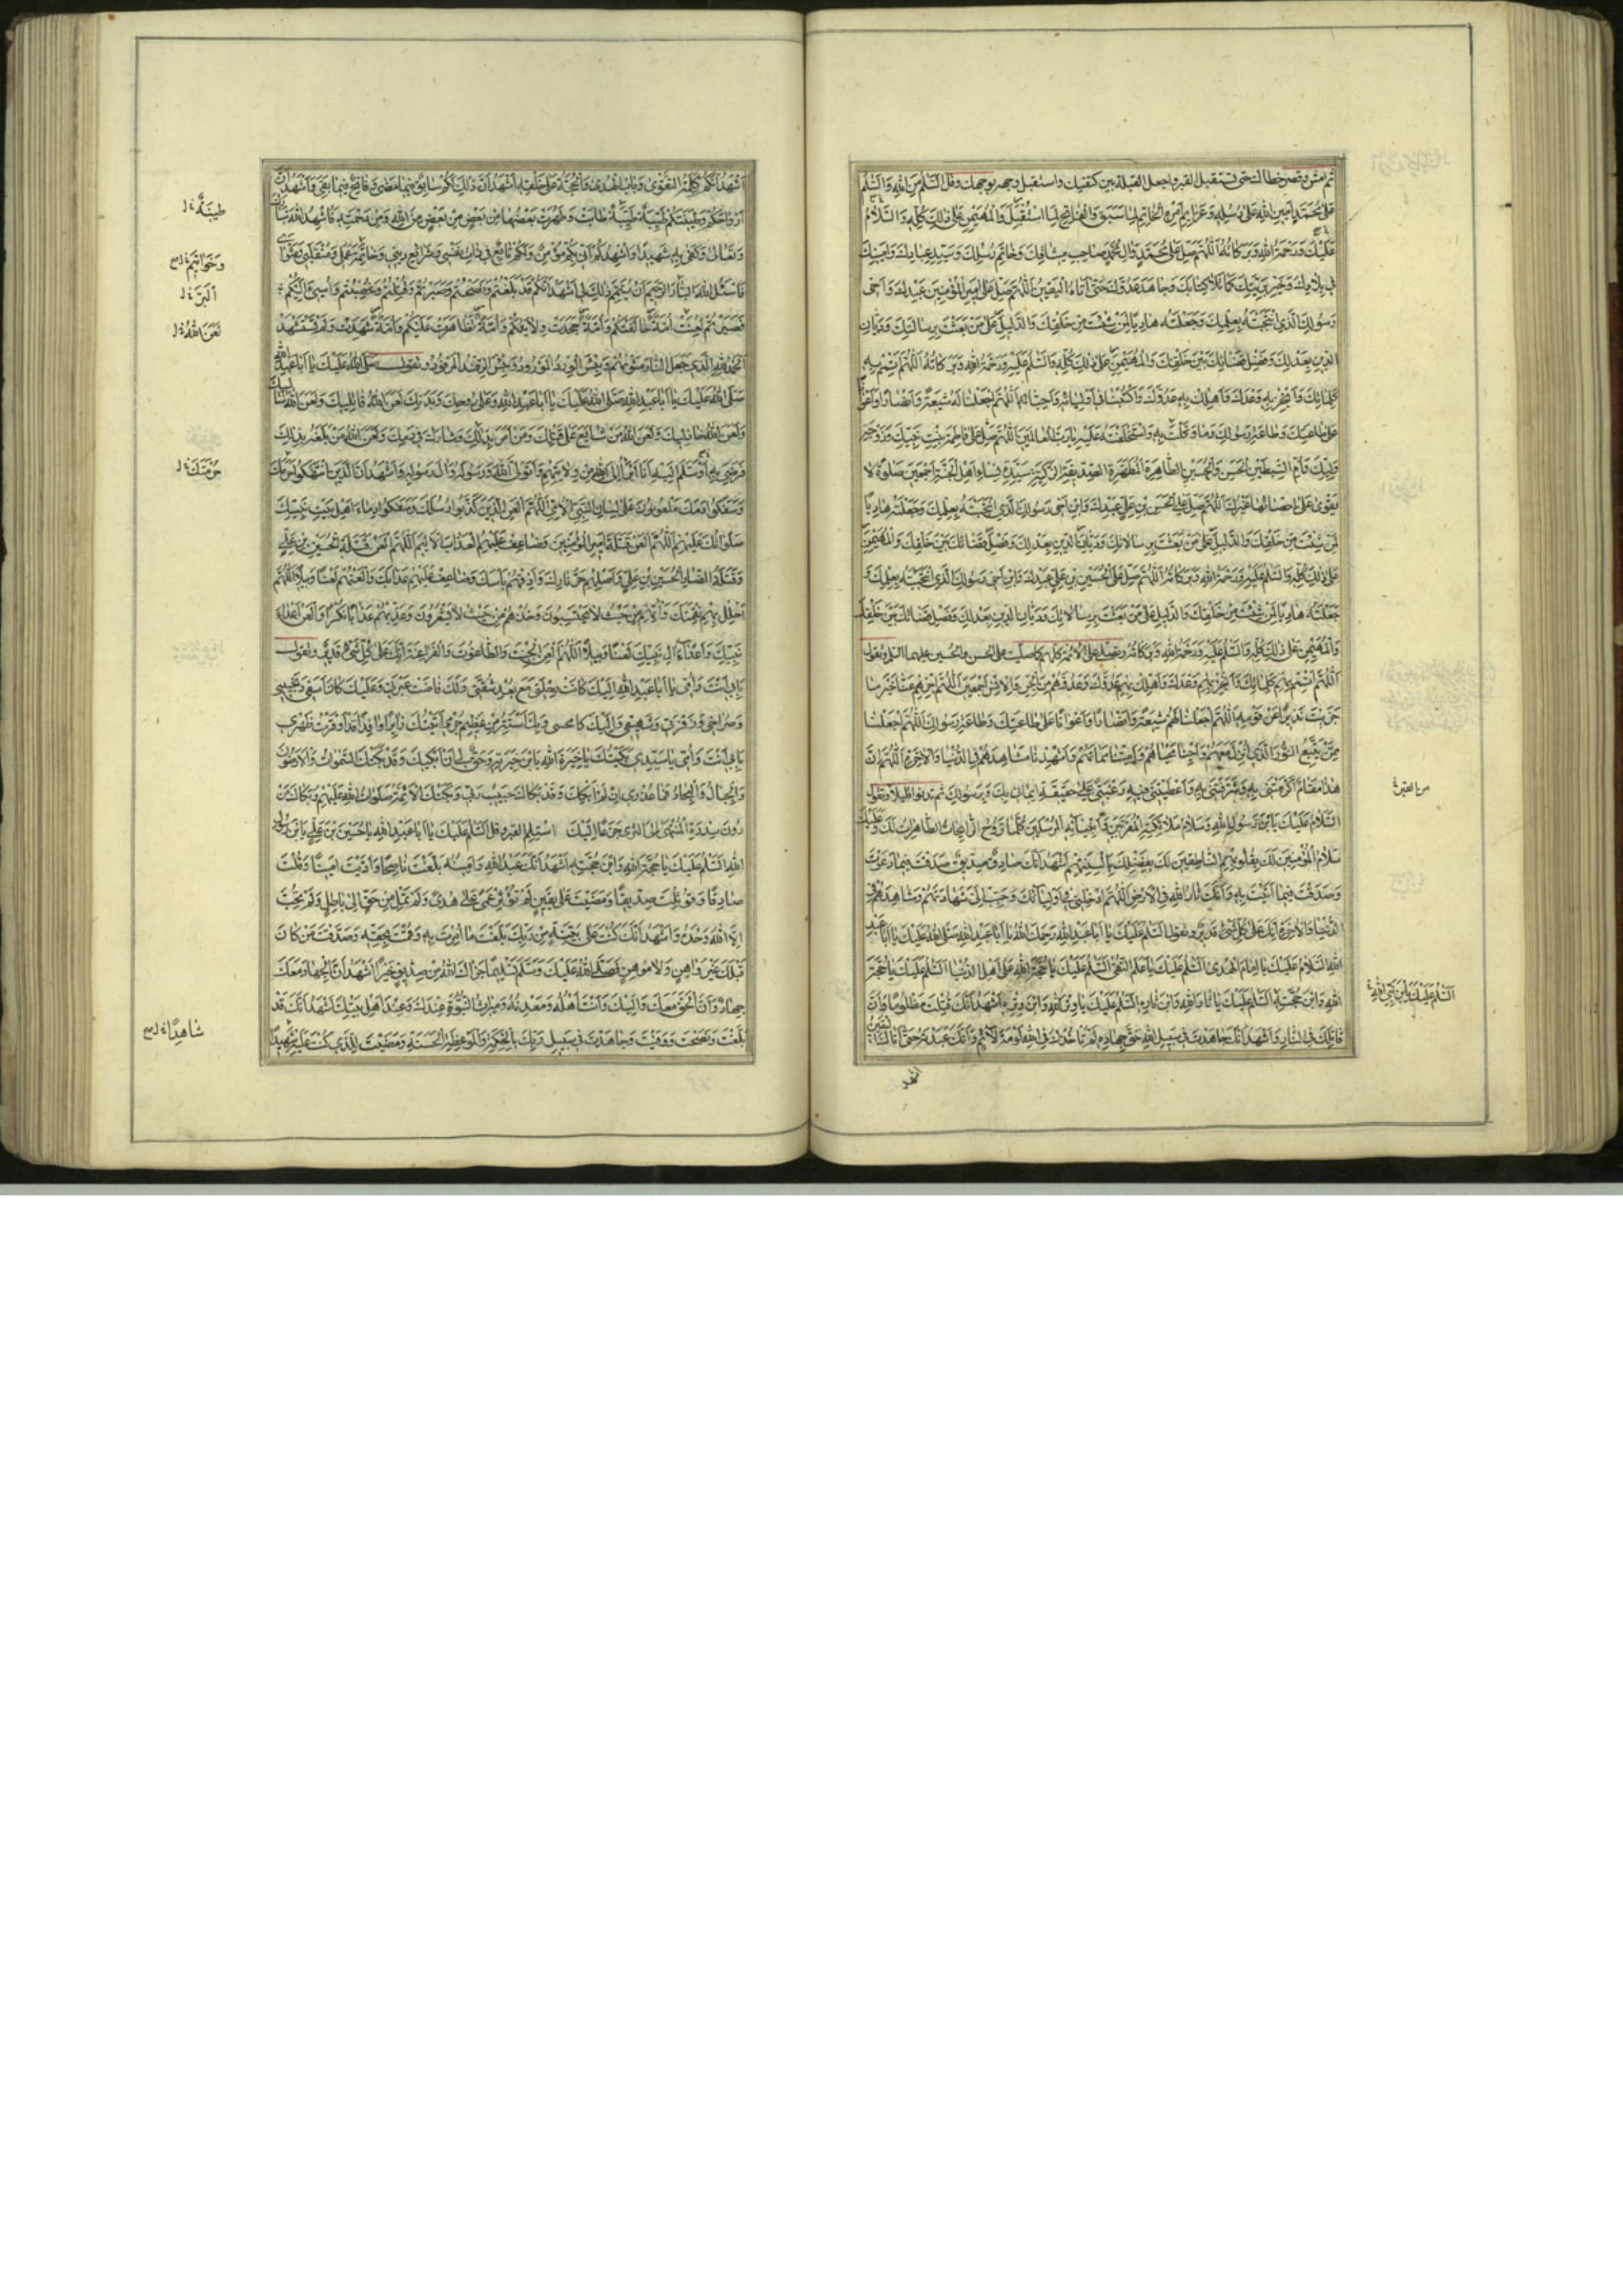 ثم امش و قصر خطاك حتى تستقبل القبر و اجعل القبلة بين كتفيك و استقبل وجهه بوجهك و قل السَّلٰمُ مِنَ اللهِ وَ السَّلٰمُ
عَلىٰ مُحَمَّدٍ اَمينِ اللهِ عَلىٰ رُسُلِهِ وَ عَزائِمِ اَمْرِهِ الْخاتِمِ لِما سَبَقَ وَ الْفاتِحِ لِمَا اسْتُقْبِلَ وَ الْمُهَيْمِنِ عَلىٰ ذٰلِكَ كُلِّهِ وَ السَّلامُ
عَلَيْكَ وَ رَحْمَةُ اللهِ وَ بَرَكاتُهُ اَللّٰهُمَّ صَلِّ عَلىٰ مُحَمَّدٍ وَ الِ مُحَمَّدٍ صاحِبِ ميثاقِكَ وَ خاتَمِ رُسُلِكَ وَ سَيِّدِ عِبادِكَ وَ اَمينِكَ
في بِلادِكَ وَ خَيْرِ بَرِيَّتِكَ كَما تَلا كِتابَكَ وَ جاهَدَ عَدُوَّكَ حَتّىٰ اَتاهُ الْيَقينُ اَللّٰهُمَّ صَلِّ عَلىٰ اَميرِ الْمُؤْمِنينَ عَبْدِكَ وَ اَخي
رَسُولِكَ الَّذي انْتَجَبْتَهُ بِعِلْمِكَ وَ جَعَلْتَهُ هادِياً لِمَنْ شِئْتَ مِنْ خَلْقِكَ وَ الدَّليلَ عَلىٰ مَنْ بَعَثْتَ بِرِسالاتِكَ وَ دَيّانِ
الدّينِ بِعَدْلِكَ وَ فَصْلِ قَضائِكَ بَيْنَ خَلْقِكَ وَ الْمُهَيْمِنِ عَلىٰ ذٰلِكَ كُلِّهِ وَ السَّلٰمُ عَلَيْهِ وَ رَحْمَةُ اللهِ وَ بَرَكاتُهُ اَللّٰهُمَّ اَتْمِمْ بِهِ
كَلِماتِكَ وَ اَنْجِزْ بِهِ وَعْدَكَ وَ اَهْلِكْ بِهِ عَدُوَّكَ وَ اكْتُبْنا في اَوْلِيائِهِ وَ اَحِبّائِهِ اَللّٰهُمَّ اجْعَلْنا لَهُ شيعَةً وَ اَنْصاراً وَ اَعْواناً
عَلىٰ طاعَتِكَ وَ طاعَةِ رَسُولِكَ وَ ما وَكَّلْتَ بِهِ وَ اسْتَخْلَفْتَهُ عَلَيْهِ يا رَبَّ الْعالَمينَ اَللّٰهُمَّ صَلِّ عَلىٰ فاطِمَةَ بِنْتِ نَبِيِّكَ وَ زَوْجَةِ
وَلِيِّكَ وَ اُمِّ السِّبْطَيْنِ الْحَسَنِ وَ الْحُسَيْنِ الطّاهِرَةِ الْمُطَهَّرَةِ الصِّدّيقَةِ الزَّكِيَّةِ سَيِّدَةِ نِساءِ اَهْلِ الْجَنَّةِ اَجْمَعينَ صَلوٰةً لا
يَقْوىٰ عَلىٰ اِحْصائِها غَيْرُكَ اَللّٰهُمَّ صَلِّ عَلَى الْحَسَنِ بْنِ عَلِيٍّ عَبْدِكَ وَ ابْنِ اَخي رَسُولِكَ الَّذي انْتَجَبْتَهُ بِعِلْمِكَ وَ جَعَلْتَهُ هادِياً
لِمَنْ شِئْتَ مِنْ خَلْقِكَ وَ الدَّليلَ عَلىٰ مَنْ بَعَثْتَ بِرِسالاتِكَ وَ دَيّانَ الدّينِ بِعَدْلِكَ وَ فَصْلِ قَضائِكَ بَيْنَ خَلْقِكَ وَ الْمُهَيْمِنَ
عَلىٰ ذٰلِكَ كُلِّهِ وَ السَّلٰمُ عَلَيْهِ وَ رَحْمَةُ اللهِ وَ بَرَكاتُهُ اَللّٰهُمَّ صَلِّ عَلَى الْحُسَيْنِ بْنِ عَلِيٍّ عَبْدِكَ وَ ابْنِ اَخي رَسُولِكَ الَّذي انْتَجَبْتَهُ بِعِلْمِكَ وَ
جَعَلْتَهُ هادِياً لِمَنْ شِئْتَ مِنْ خَلْقِكَ وَ الدَّليلِ عَلىٰ مَنْ بَعَثْتَ بِرِسالاتِكَ وَ دَيّانِ الدّينِ بِعَدْلِكَ وَ فَصْلِ قَضائِكَ بَيْنَ خَلْقِكَ
وَ الْمُهَيْمِنِ عَلىٰ ذٰلِكَ كُلِّهِ وَ السَّلٰمُ عَلَيْهِ وَ رَحْمَةُ اللهِ وَ بَرَكاتُهُ و تصلي على الائمة كلهم كما صليت على الحسن و الحسين عليهما السلم و تقول
اَللّٰهُمَّ اَتْمِمْ بِهِمْ كَلِماتِكَ وَ اَنْجِزْ بِهِمْ وَعْدَكَ وَ اَهْلِكْ بِهِمْ عَدُوَّكَ وَ عَدُوَّهُمْ مِنَ الْجِنِّ وَ الْاِنْسِ اَجْمَعينَ اَللّٰهُمَّ اجْزِهِمْ عَنّا خَيْرَ ما
جَزَيْتَ نَذيراً عَنْ قَوْمِهِ اَللّٰهُمَّ اجْعَلْنا لَهُمْ شيعَةً وَ اَنْصاراً وَ اَعْواناً عَلىٰ طاعَتِكَ وَ طاعَةِ رَسُولِكَ اَللّٰهُمَّ اجْعَلْنا
مِمَّنْ يَتَّبِعُ النُّورَ الَّذي اُنْزِلَ مَعَهُمْ وَ اَحْيِنا مَحْياهُمْ وَ اَمِتْنا مَماتَهُمْ وَ اَشْهِدْنا مَشاهِدَهُمْ فِي الدُّنْيا وَ الْاٰخِرَةِ اَللّٰهُمَّ اِنَّ
هٰذا مَقامٌ اَكْرَمْتَني بِهِ وَ شَرَّفْتَني بِهِ وَ اَعْطَيْتَني فيهِ رَغْبَتي عَلىٰ حَقيقَةِ ايماني بِكَ وَ بِرَسُولِكَ ثم تدنو قليلا و تقول
السَّلامُ عَلَيْكَ يَا بْنَ رَسُولِ اللهِ وَ سَلامُ مَلائِكَتِهِ الْمُقَرَّبينَ وَ اَنْبِيائِهِ الْمُرْسَلينَ كُلَّما تَرُوحُ الرّايِحاتُ الطّاهِراتُ لَكَ وَ عَلَيْكَ
سَلامُ الْمُؤْمِنينَ لَكَ بِقُلُوبِهِمْ النّاطِقينَ لَكَ بِفَضْلِكَ بِاَلْسِنَتِهِمْ اَشْهَدُ اَنَّكَ صادِقٌ صِدّيقٌ صَدَقْتَ فيما دَعَوْتَ
وَ صَدَقْتَ فيما اَتَيْتَ بِهِ وَ اَنَّكَ ثارُ اللهِ فِي الْاَرْضِ اَللّٰهُمَّ اَدْخِلْني في اَوْلِيائِكَ وَ حَبِّبْ اِلَيَّ شَهادَتَهُمْ وَ مَشاهِدَهُمْ فِي
الدُّنْيا وَ الْاٰخِرَةِ اِنَّكَ عَلىٰ كُلِّ شَيْءٍ قَديرٌ و تقول السَّلٰمُ عَلَيْكَ يا اَبا عَبْدِ اللهِ رَحِمَكَ اللهُ يا اَبا عَبْدِ اللهِ صَلَّى اللهُ عَلَيْكَ يا اَبا عَبْدِ
اللهِ السَّلامُ عَلَيْكَ يا اِمامَ الْهُدىٰ السَّلٰمُ عَلَيْكَ يا عَلَمَ التُّقىٰ السَّلٰمُ عَلَيْكَ يا حُجَّةَ اللهِ عَلىٰ اَهْلِ الدُّنْيا السَّلٰمُ عَلَيْكَ يا حُجَّةَ
اللهِ وَ ابْنَ حُجَّتِهِ السَّلٰمُ عَلَيْكَ يا ثارَ اللهِ وَ ابْنَ ثارِهِ السَّلٰمُ عَلَيْكَ يا وِتْرَ اللهِ وَ ابْنَ وِتْرِهِ اَشْهَدُ اَنَّكَ قُتِلْتَ مَظْلُوماً وَ اَنَّ
قاتِلَكَ فِي النّارِ وَ اَشْهَدُ اَنَّكَ جاهَدْتَ في سَبيلِ اللهِ حَقَّ جِهادِهِ لَمْ تَأْخُذْكَ فِي اللهِ لَوْمَةُ لائِمٍ وَ اَنَّكَ عَبَدْتَهُ حَتّىٰ اَتاكَ الْيَقينُ
من القبر
السَّلٰمُ عَلَيْكَ يَا بْنَ نَبِيِّ اللهِ
اشهد
اَشْهَدُ اَنَّكُمْ كَلِمَةُ التَّقْوىٰ وَ بابُ الْهُدىٰ وَ الْحُجَّةُ عَلىٰ خَلْقِهِ اَشْهَدُ اَنَّ ذٰلِكَ لَكُمْ سابِقٌ فيما مَضىٰ وَ فاتِحٌ فيما بَقِيَ وَ اَشْهَدُ اَنَّ
اَرْواحَكُمْ وَ طينَتَكُمْ طَيِّبَةٌ طابَتْ وَ طَهُرَتْ بَعْضُها مِنْ بَعْضٍ مِنَ اللهِ وَ مِنْ رَحْمَتِهِ فَاُشْهِدُ اللهَ تَبارَكَ
وَ تَعالىٰ وَ كَفىٰ بِهِ شَهيداً وَ اُشْهِدُكُمْ اَنّي بِكُمْ مُؤْمِنٌ وَ لَكُمْ تابِعٌ في ذاتِ نَفْسي وَ شَرائِعِ ديني وَ خاتِمَةِ عَمَلي وَ مُنْقَلَبي وَ مَثْوايَ
فَاَسْئَلُ اللهَ الْبارَّ الرَّحيمَ اَنْ يُتَمِّمَ ذٰلِكَ لي اَشْهَدُ اَنَّكُمْ قَدْ بَلَّغْتُمْ وَ نَصَحْتُمْ وَ صَبَرْتُمْ وَ قُتِلْتُمْ وَ غُصِبْتُمْ وَ اُسيءَ اِلَيْكُمْ
فَصَبَرْتُمْ لُعِنَتْ اُمَّةٌ خالَفَتْكُمْ وَ اُمَّةٌ جَحَدَتْ وِلايَتَكُمْ وَ اُمَّةٌ تَظاهَرَتْ عَلَيْكُمْ وَ اُمَّةٌ شَهِدَتْ وَ لَمْ تُسْتَشْهَدْ
اَلْحَمْدُ لِلّٰهِ الَّذي جَعَلَ النّارَ مَثْويٰهُمْ وَ بِئْسَ الْوِرْدُ الْمَوْرُودُ وَ بِئْسَ الرِّفْدُ الْمَرْفُودُ و تقول صَلَّى اللهُ عَلَيْكَ يا اَبا عَبْدِ اللهِ
صَلَّى اللهُ عَلَيْكَ يا اَبا عَبْدِ اللهِ صَلَّى اللهُ عَلَيْكَ يا اَبا عَبْدِ اللهِ وَ عَلىٰ رُوحِكَ وَ بَدَنِكَ لَعَنَ اللهُ قاتِليكَ وَ لَعَنَ اللهُ سالِبيكَ
وَ لَعَنَ اللهُ خاذِليكَ وَ لَعَنَ اللهُ مَنْ شايَعَ عَلىٰ قَتْلِكَ وَ مَنْ اَمَرَ بِذٰلِكَ وَ شارَكَ في دَمِكَ وَ لَعَنَ اللهُ مَنْ بَلَغَهُ ذٰلِكَ
فَرَضِيَ بِهِ اَوْ سَلَّمَ اِلَيْهِ اَنَا اَبْرَأُ اِلَى اللهِ مِنْ وِلايَتِهِمْ وَ اَتَوَلَّى اللهَ وَ رَسُولَهُ وَ الَ رَسُولِهِ وَ اَشْهَدُ اَنَّ الَّذينَ انْتَهَكُوا حَرَمَكَ
وَ سَفَكُوا دَمَكَ مَلْعُونُونَ عَلىٰ لِسانِ النَّبِيِّ الْاُمِّيِّ اَللّٰهُمَّ الْعَنِ الَّذينَ كَذَّبُوا رُسُلَكَ وَ سَفَكُوا دِماءَ اَهْلِ بَيْتِ نَبِيِّكَ
صَلَواتُكَ عَلَيْهِمْ اَللّٰهُمَّ الْعَنْ قَتَلَةَ اَميرِ الْمُؤْمِنينَ وَ ضاعِفْ عَلَيْهِمُ الْعَذابَ الْاَليمَ اَللّٰهُمَّ الْعَنْ قَتَلَةَ الْحُسَيْنِ بْنِ عَلِيٍّ
وَ قَتَلَةَ اَنْصارِ الْحُسَيْنِ بْنِ عَلِيٍّ وَ اَصْلِهِمْ حَرَّ نارِكَ وَ اَذِقْهُمْ بَأْسَكَ وَ ضاعِفْ عَلَيْهِمْ عَذابَكَ وَ الْعَنْهُمْ لَعْناً وَبيلاً اَللّٰهُمَّ
اَحْلِلْ بِهِمْ نَقِمَتَكَ وَ اْتِهِمْ مِنْ حَيْثُ لا يَحْتَسِبُونَ وَ خُذْهُمْ مِنْ حَيْثُ لا يَشْعُرُونَ وَ عَذِّبْهُمْ عَذاباً نُكْراً وَ الْعَنْ اَعْداءَ
نَبِيِّكَ وَ اَعْداءَ الِ نَبِيِّكَ لَعْناً وَبيلاً اَللّٰهُمَّ الْعَنِ الْجِبْتَ وَ الطّاغُوتَ وَ الْفَراعِنَةَ اِنَّكَ عَلىٰ كُلِّ شَيْءٍ قَديرٌ و تقول
بِاَبي اَنْتَ وَ اُمّي يا اَبا عَبْدِ اللهِ اِلَيْكَ كانَتْ رِحْلَتي مَعَ بُعْدِ شُقَّتي وَ لَكَ فاضَتْ عَبْرَتي وَ عَلَيْكَ كانَ اَسَفي وَ نَحيبي
وَ صُراخي وَ زَفْرَتي وَ شَهيقي وَ اِلَيْكَ كانَ مَجيئي وَ بِكَ اَسْتَتِرُ مِنْ عَظيمِ جُرْمي اَتَيْتُكَ زائِراً وافِداً قَدْ اَوْقَرْتُ ظَهْري
بِاَبي اَنْتَ وَ اُمّي يا سَيِّدي بَكَيْتُكَ يا خِيَرَةَ اللهِ وَ ابْنَ خِيَرَتِهِ وَ حَقٌّ لي اَنْ اَبْكِيَكَ وَ قَدْ بَكَتْكَ السَّمٰواتُ وَ الْاَرَضُونَ
وَ الْجِبالُ وَ الْبِحارُ فَما عُذْري اِنْ لَمْ اَبْكِكَ وَ قَدْ بَكاكَ حَبيبُ رَبّي وَ بَكَتْكَ الْاَئِمَّةُ صَلَواتُ اللهِ عَلَيْهِمْ وَ بَكاكَ مَنْ
دُونَ سِدْرَةِ الْمُنْتَهىٰ اِلَى الثَّرىٰ جَزَعاً عَلَيْكَ استلم القبر و قل السَّلٰمُ عَلَيْكَ يا اَبا عَبْدِ اللهِ يا حُسَيْنَ بْنَ عَلِيٍّ يَا بْنَ رَسُولِ
اللهِ السَّلٰمُ عَلَيْكَ يا حُجَّةَ اللهِ وَ ابْنَ حُجَّتِهِ اَشْهَدُ اَنَّكَ عَبْدُ اللهِ وَ اَمينُهُ بَلَّغْتَ ناصِحاً وَ اَدَّيْتَ اَميناً وَ قُتِلْتَ
صِدّيقاً وَ مَضَيْتَ عَلىٰ يَقينٍ لَمْ تُؤْثِرْ عَمىً عَلىٰ هُدىً وَ لَمْ تَمِلْ مِنْ حَقٍّ اِلىٰ باطِلٍ وَ لَمْ تُجِبْ
اِلَّا اللهَ وَحْدَهُ وَ اَشْهَدُ اَنَّكَ كُنْتَ عَلىٰ بَيِّنَةٍ مِنْ رَبِّكَ بَلَّغْتَ ما اُمِرْتَ بِهِ وَ قُمْتَ بِحَقِّهِ وَ صَدَّقْتَ مَنْ كانَ
قَبْلَكَ غَيْرَ واهِنٍ وَ لا مُوهِنٍ فَصَلَّى اللهُ عَلَيْكَ وَ سَلَّمَ تَسْليماً جَزاكَ اللهُ مِنْ صِدّيقٍ خَيْراً اَشْهَدُ اَنَّ الْجِهادَ مَعَكَ
جِهادٌ وَ اَنَّ الْحَقَّ مَعَكَ وَ اِلَيْكَ وَ اَنْتَ اَهْلُهُ وَ مَعْدِنُهُ وَ ميراثُ النُّبُوَّةِ عِنْدَكَ وَ عِنْدَ اَهْلِ بَيْتِكَ اَشْهَدُ اَنَّكَ قَدْ
بَلَّغْتَ وَ نَصَحْتَ وَ وَفَيْتَ وَ جاهَدْتَ في سَبيلِ رَبِّكَ بِالْحِكْمَةِ وَ الْمَوْعِظَةِ الْحَسَنَةِ وَ مَضَيْتَ لِلَّذي كُنْتَ عَلَيْهِ شَهيداً
طينَةً
وَ خَواتيمَ
اَلْبَرَّ
لَعَنَ اللهُ
حُرْمَتَكَ
شاهِداً